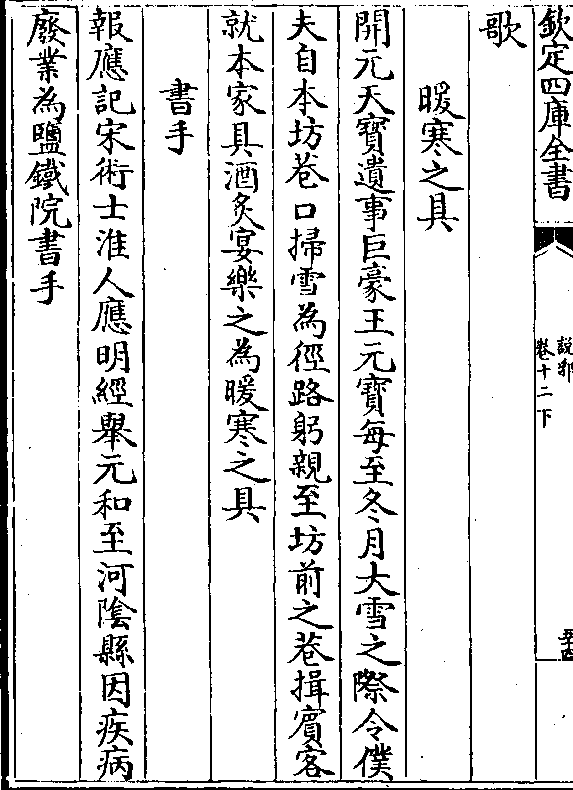 欽定四庫全書
說郛
卷十二下
歌
暖寒之具
開元天寶遺事巨豪王元寶每至冬月大雪之際令僕
夫自本坊巷口掃雪為徑路躬親至坊前之巷揖賓客
就本家具酒炙宴樂之為暖寒之具
書手
報應記宋術士淮人應明經舉元和至河陰縣因疾病
廢業為鹽鐵院書手